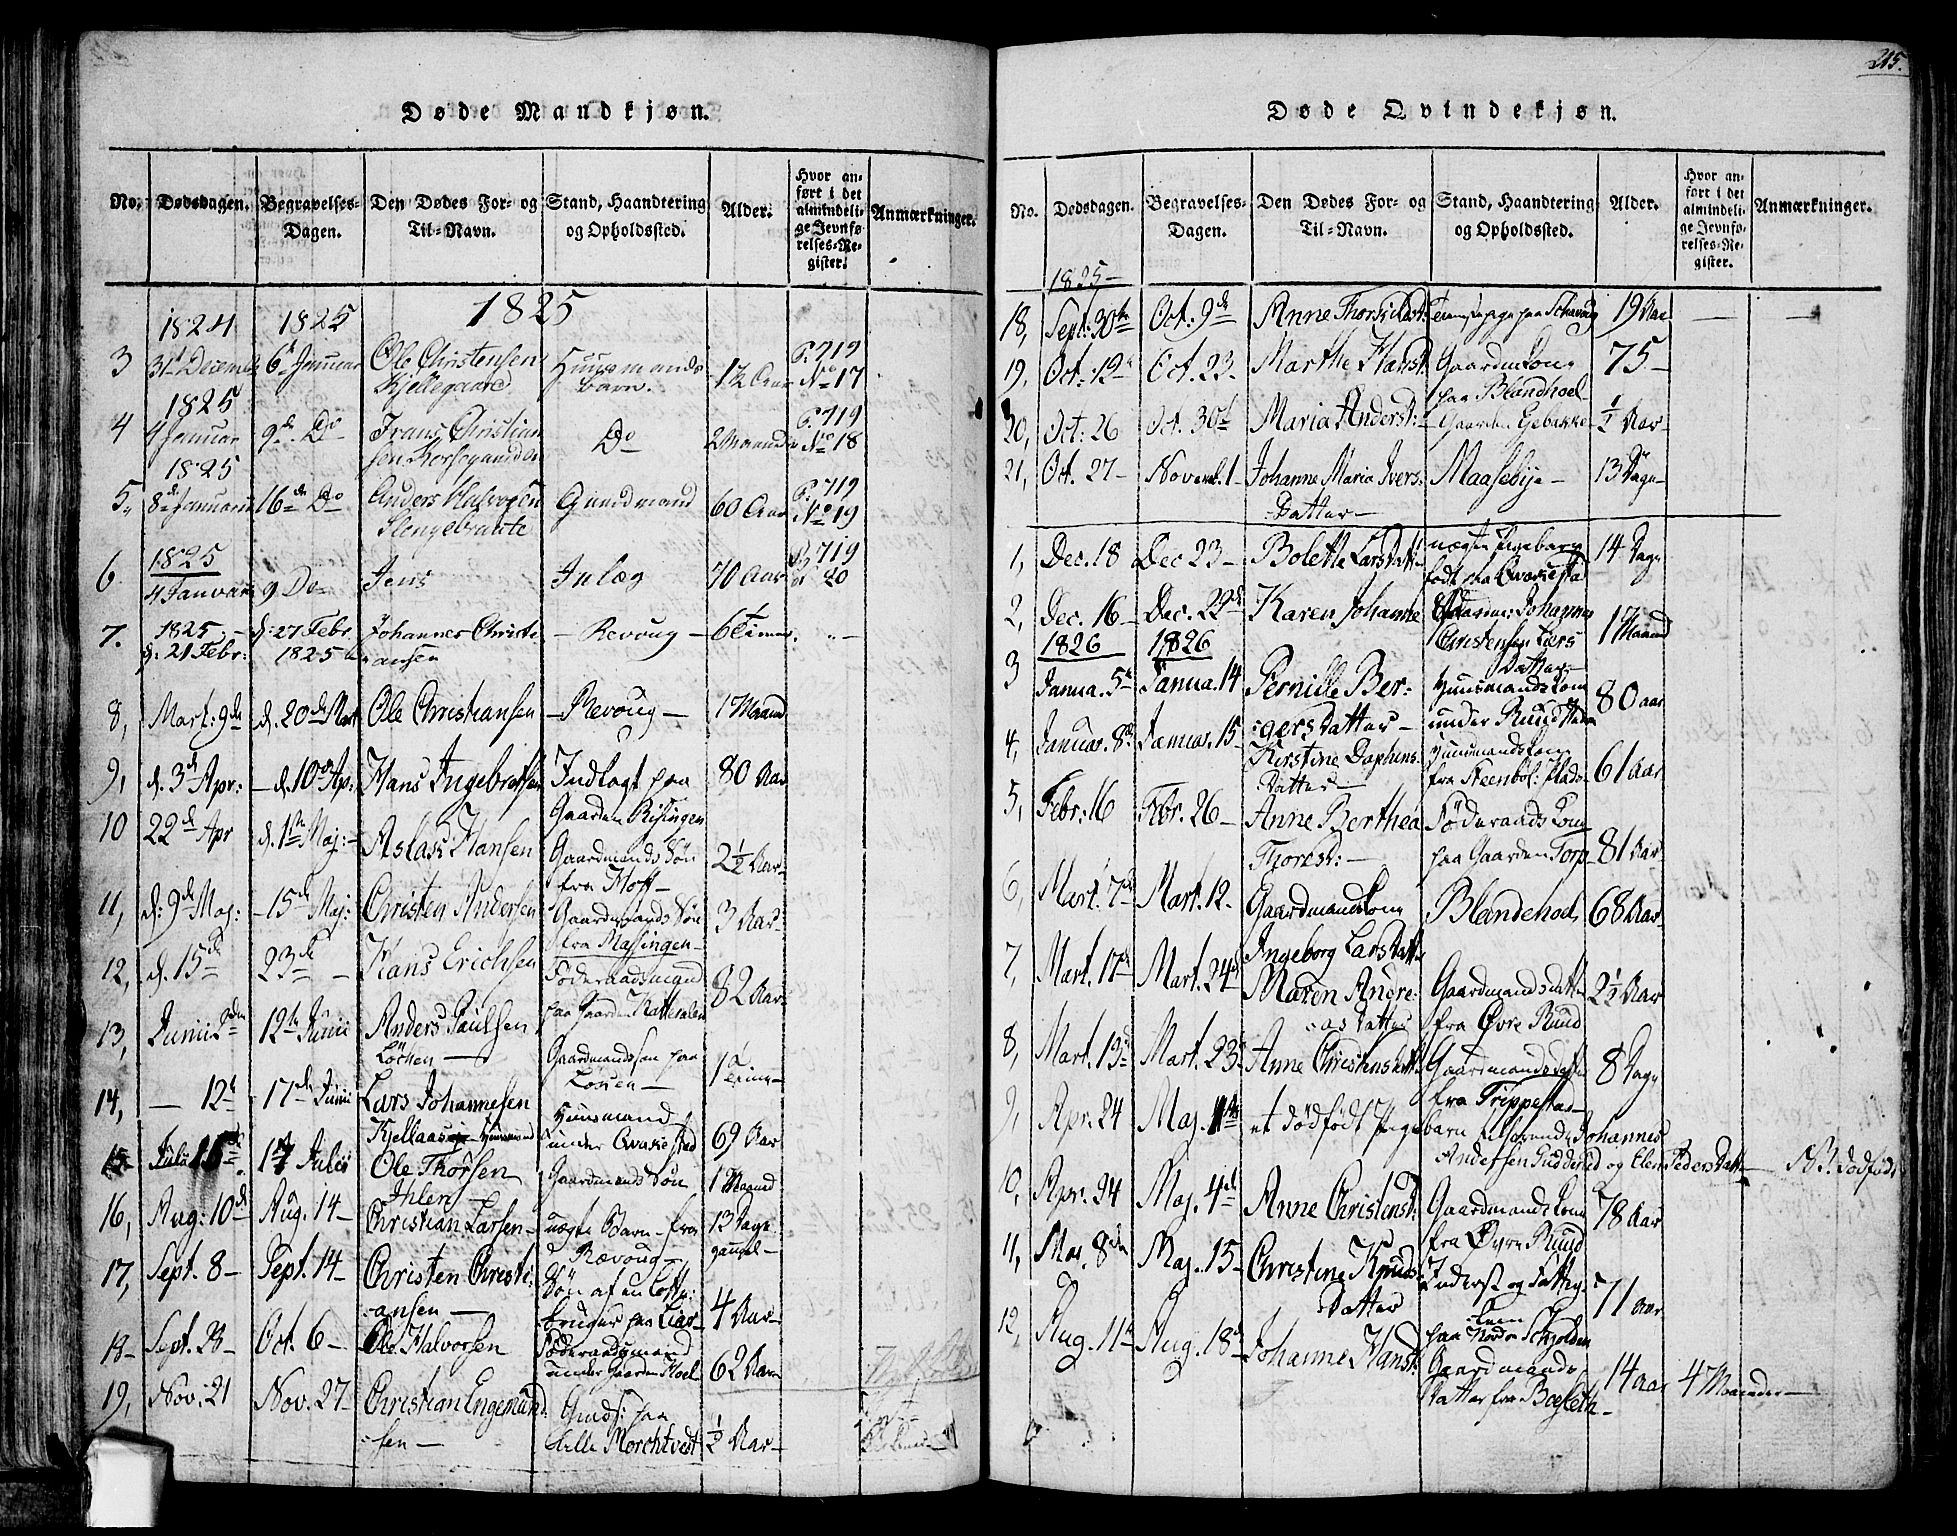 215.
Døde Mandkjøn.
No. Dødsdagen. Begravelses-Dagen. Den Dødes For- og Til-Navn. Stand, Haandtering og Opholdssted. Alder. Hvor anført i det almindelige Jevnførelses-Register. Anmærkninger.
1824 1825 1825
3 31te Decembr 6te Januar Ole Christensen Huusmands 1½ Aar P. 719
Kjellegaard barn. No 17
1825
4 4 Januar 9de Do Frans Christian Do 2 Maander P. 719
sen No 18
1825
5. 8de Januarii 16de Do Anders Halvorsen Gaardmand 60 Aar P. 719
Slengebraate No 19
1825
6. 4 Januar 9 Do Jens Inlæg 70 Aar P. 719
20
7. 1825 d. 27 Febr. Johannes Christi- Revoug 6 Timer
d. 21 Febr: 1825 ansen
8, Mart: 9de d. 20de Mart Ole Christiansen Revoug 1 Maaned
9, d. 3de Apr: d. 10de Ap: Hans Ingebretsen Indlagt paa 80 Aar
Gaarden Risingen
10 22de Apr d. 1ste Maj: Aslak Hansen Gaardmands Søn 2½ Aar
fra Hoff
11, d: 9de Maj: 15de Maj: Christen Andersen Gaardmands Søn 3 Aar
fra Massingen
12, d. 15de 23de Hans Erichsen Föderaadsmand 82 Aar
paa Gaarden
13, Junii 2den 12te Junii Anders Paulsen Gaardmandssøn paa 1 Time
Löchen
14, 12te 17de Junii Lars Johannesen Huusmand 69 Aar
Kjellaas under Qvakestad
15 Julii 17 Julii Ole Thorsen Gaardmands Søn 1 Maaned
Ihlen
16, Aug: 10de Aug. 14 Christian Larsen uægte Barn fra 13 Dage
Rævoug gammel
17, Sept. 8 Sept. 14 Christen Christi- Søn af en 4 Aar
ansen bruger paa Lier
18 Sept. 28 Oct. 6 Ole Halvorsen Föderaadsmand 62 Aar
under Gaarden Hoel
19, Nov. 21 Nov. 27 Christian Engemund- Gmds: paa ½ Aar
sen Lille Morchtvedt
Døde Qvindekjøn.
No. Dødsdagen. Begravelses-Dagen. Den Dødes For- og Til-Navn. Stand, Haandtering og Opholdssted. Alder. Hvor anført i det almindelige Jevnførelses-Register. Anmærkninger.
1825
18, Sept: 30te Oct: 9de Anne 19 Aar
19, Oct: 12te Oct. 23 Marthe Hansd. Gaardmdkone 75
paa Blandhoel
20, Oct: 26 Oct. 30te Maria Andersd: Gaarden Egebakke ½ Aar
21, Oct. 27 Novemb. 1 Johanne Maria Ivers- Maasebye 13 Dage
Datter
1, Dec. 18 Dec 23 Bolethe Larsdatter uægte Pigebarn 14 Dage
født paa Qvakestad
2, Dec. 16 Dec. 29de Karen Johanne Johannes 1 Maaned
Christensen
1826 1826
3 Janua. 5te Janua. 14 Pernille Ber- Huusmandskone 80 aar
gersdatter under Ruud
4, Januar. 8de Januar. 15 Kirstine Huusmandskone 61 Aar
Datter fra Steenbøl
5, Febr. 16 Febr. 26 Anne Berthea Föderaads Kone 81 Aar
Thoresd: paa Gaarden Torp
6, Mart. 7de Mart. 12 Gaardmandskone Blandehod 68 Aar
Ingeborg Larsdatter
7, Mart. 17de Mart. 24de Maren Andre- Gaardmandsdatter 2½ Aar
as Datter fra Øvre Ruud
8, Mart. 19de Mart. 23de Anne Christensdatt Gaardmandsdatter 8 Dage
fra Trippestad
9, Apr. 24 Maj. et dödfödt Pigebarn Johannes
Andersen Gudderud og Elen Peders Datter NB. dödfödt
10, Apr. 24 Maj. 4de Anne Christensd: Gaardmandskone 78 Aar
fra Øvre Ruud
11, Maj. 8de Maj. 15 Christine Knuds- Inderst og Fattig- 71 aar
Datter Lem
paa Nordre Schjolden
12, Aug. 11te Aug. 18de Johanne Hansd: Gaardmands 14 aar 4 Maaneder
Datter fra Bøsleth